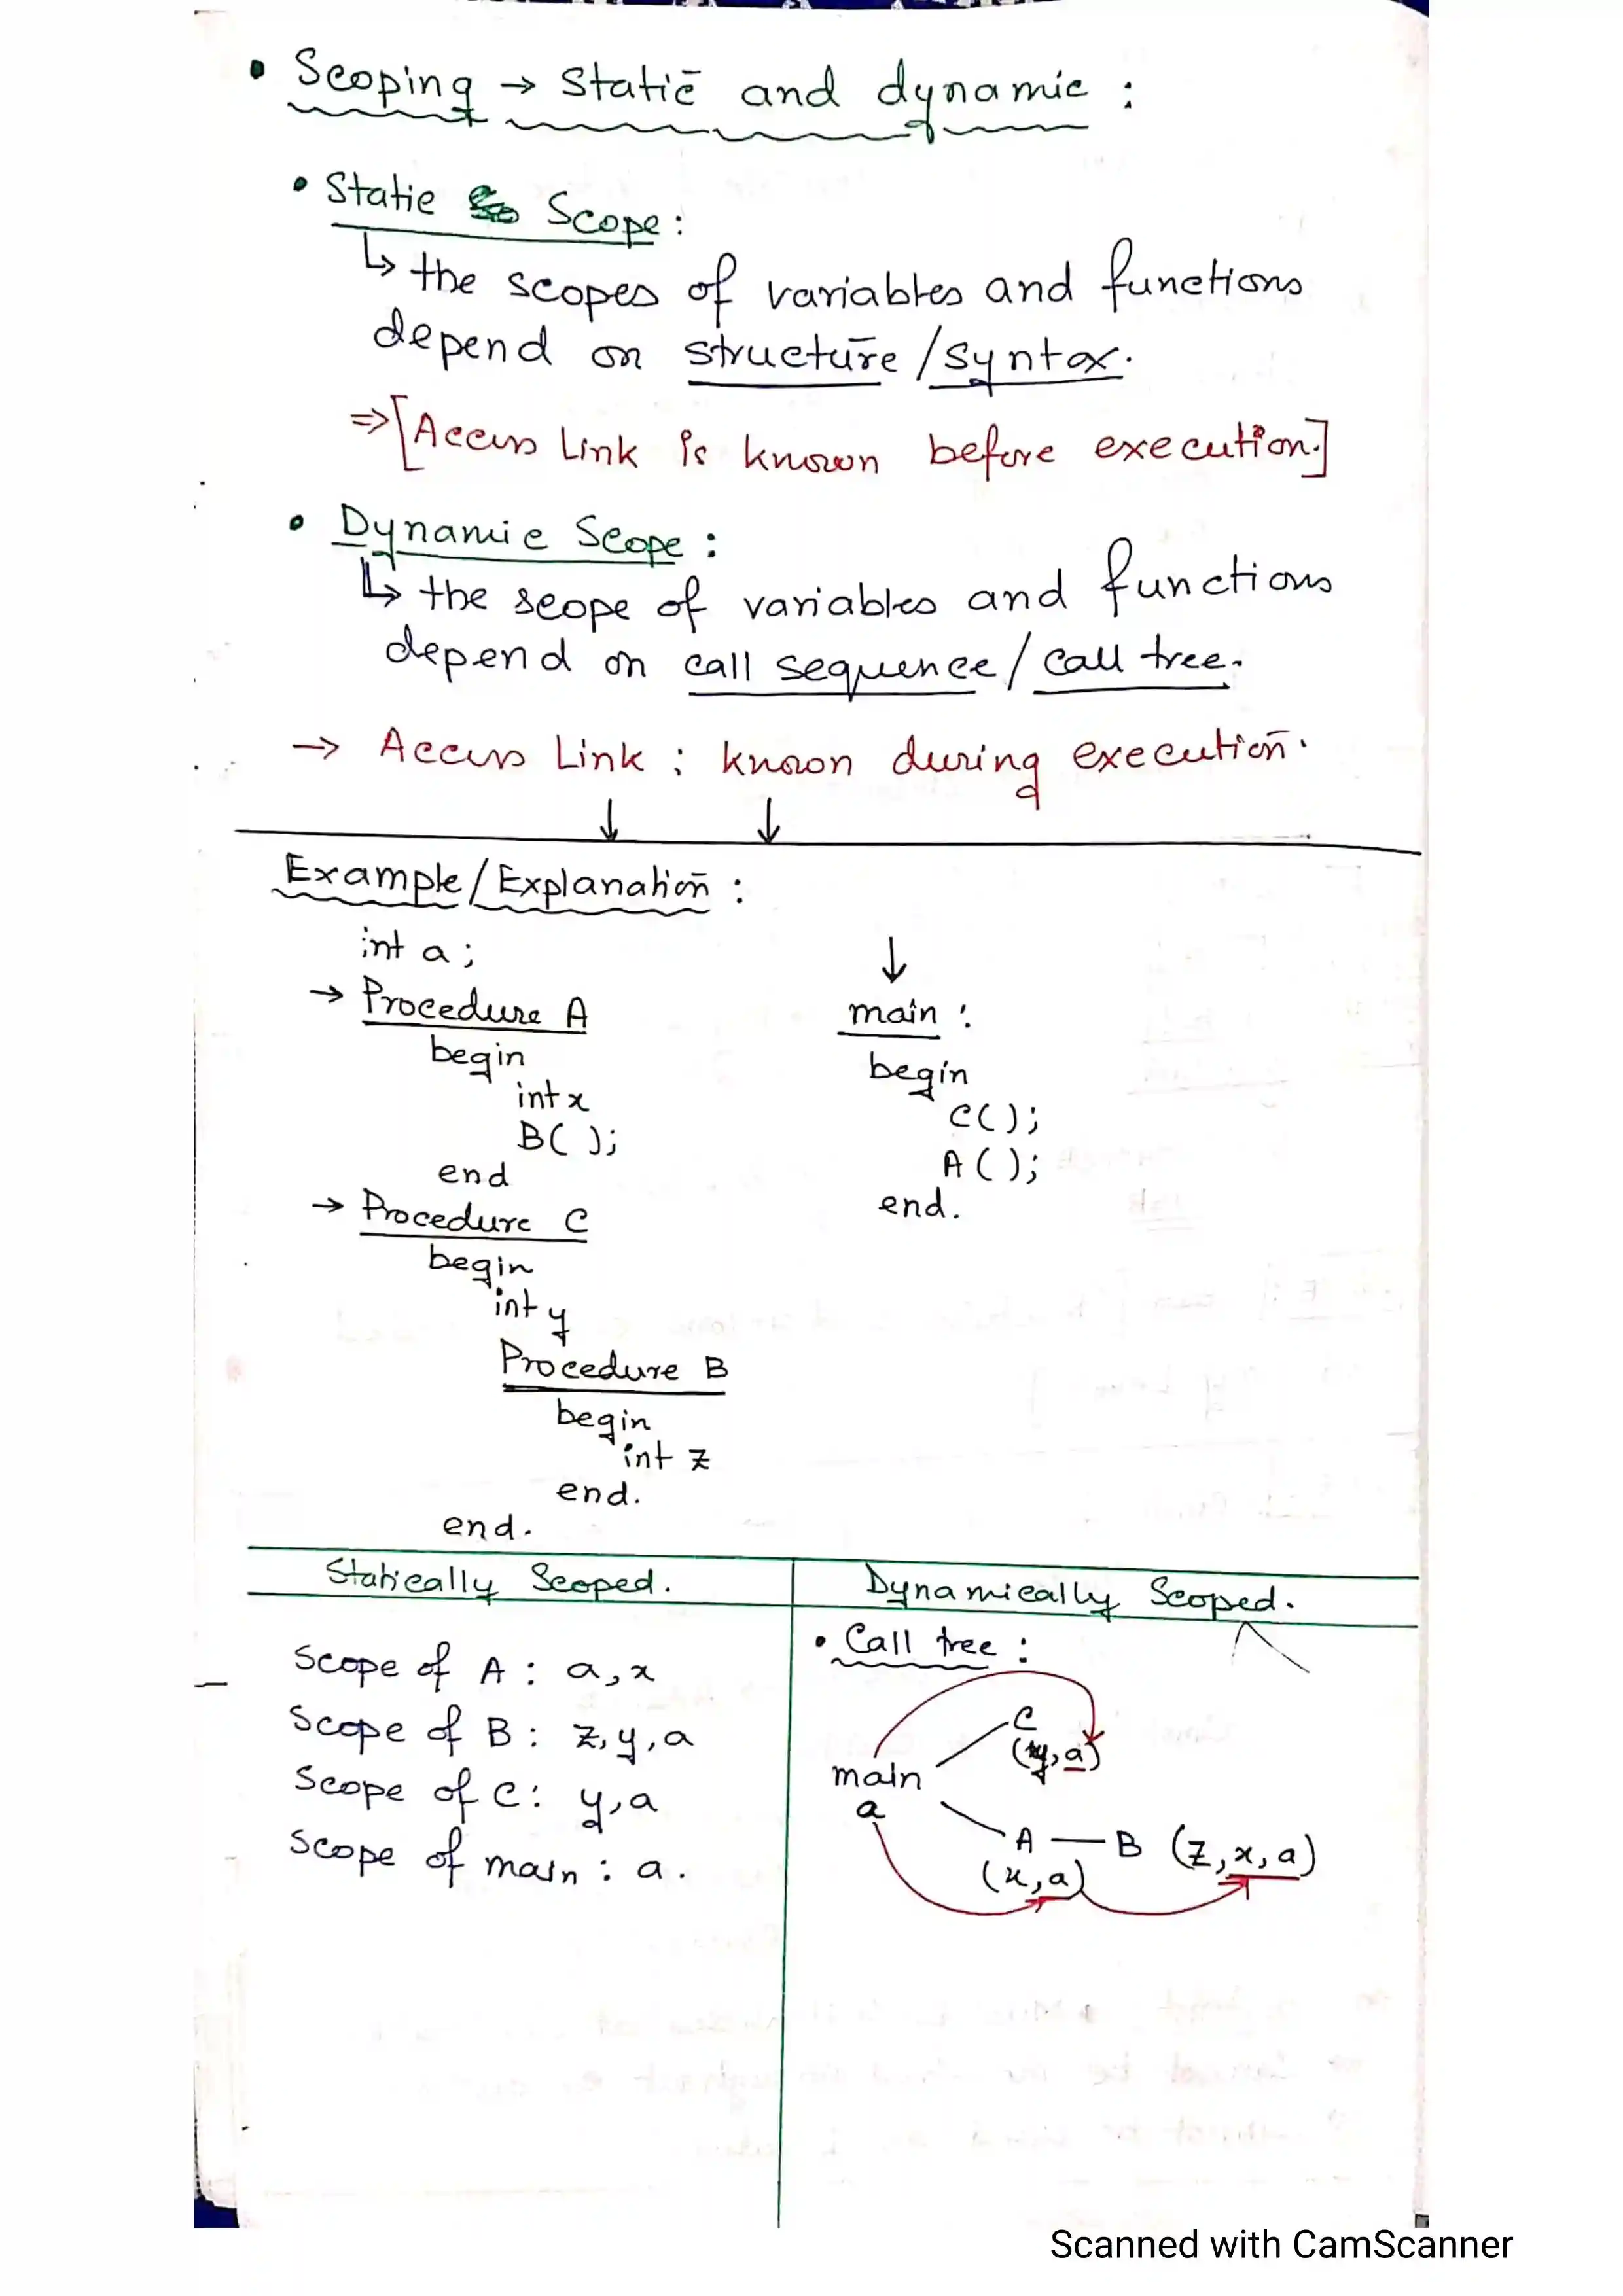 • Scoping → Static and dynamic :
• Static Scope :
↳ the scopes of variables and functions
depend on structure / syntax.
⇒ [Access Link is known before execution.]
• Dynamic Scope :
↳ the scope of variables and functions
depend on call sequence / call tree.
→ Access Link : known during execution.
↓ ↓
Example / Explanation :
int a ;
→ Procedure A
begin
int x
B( );
end
→ Procedure C
begin
int y
Procedure B
begin
int z
end.
end.
↓
main :
begin
C( );
A( );
end.
Statically Scoped.
Scope of A : a, x
Scope of B : z, y, a
Scope of C : y, a
Scope of main : a.
Dynamically Scoped.
• Call tree :
C
(y, a)
main
a
A — B (z, x, a)
(x, a)
Scanned with CamScanner